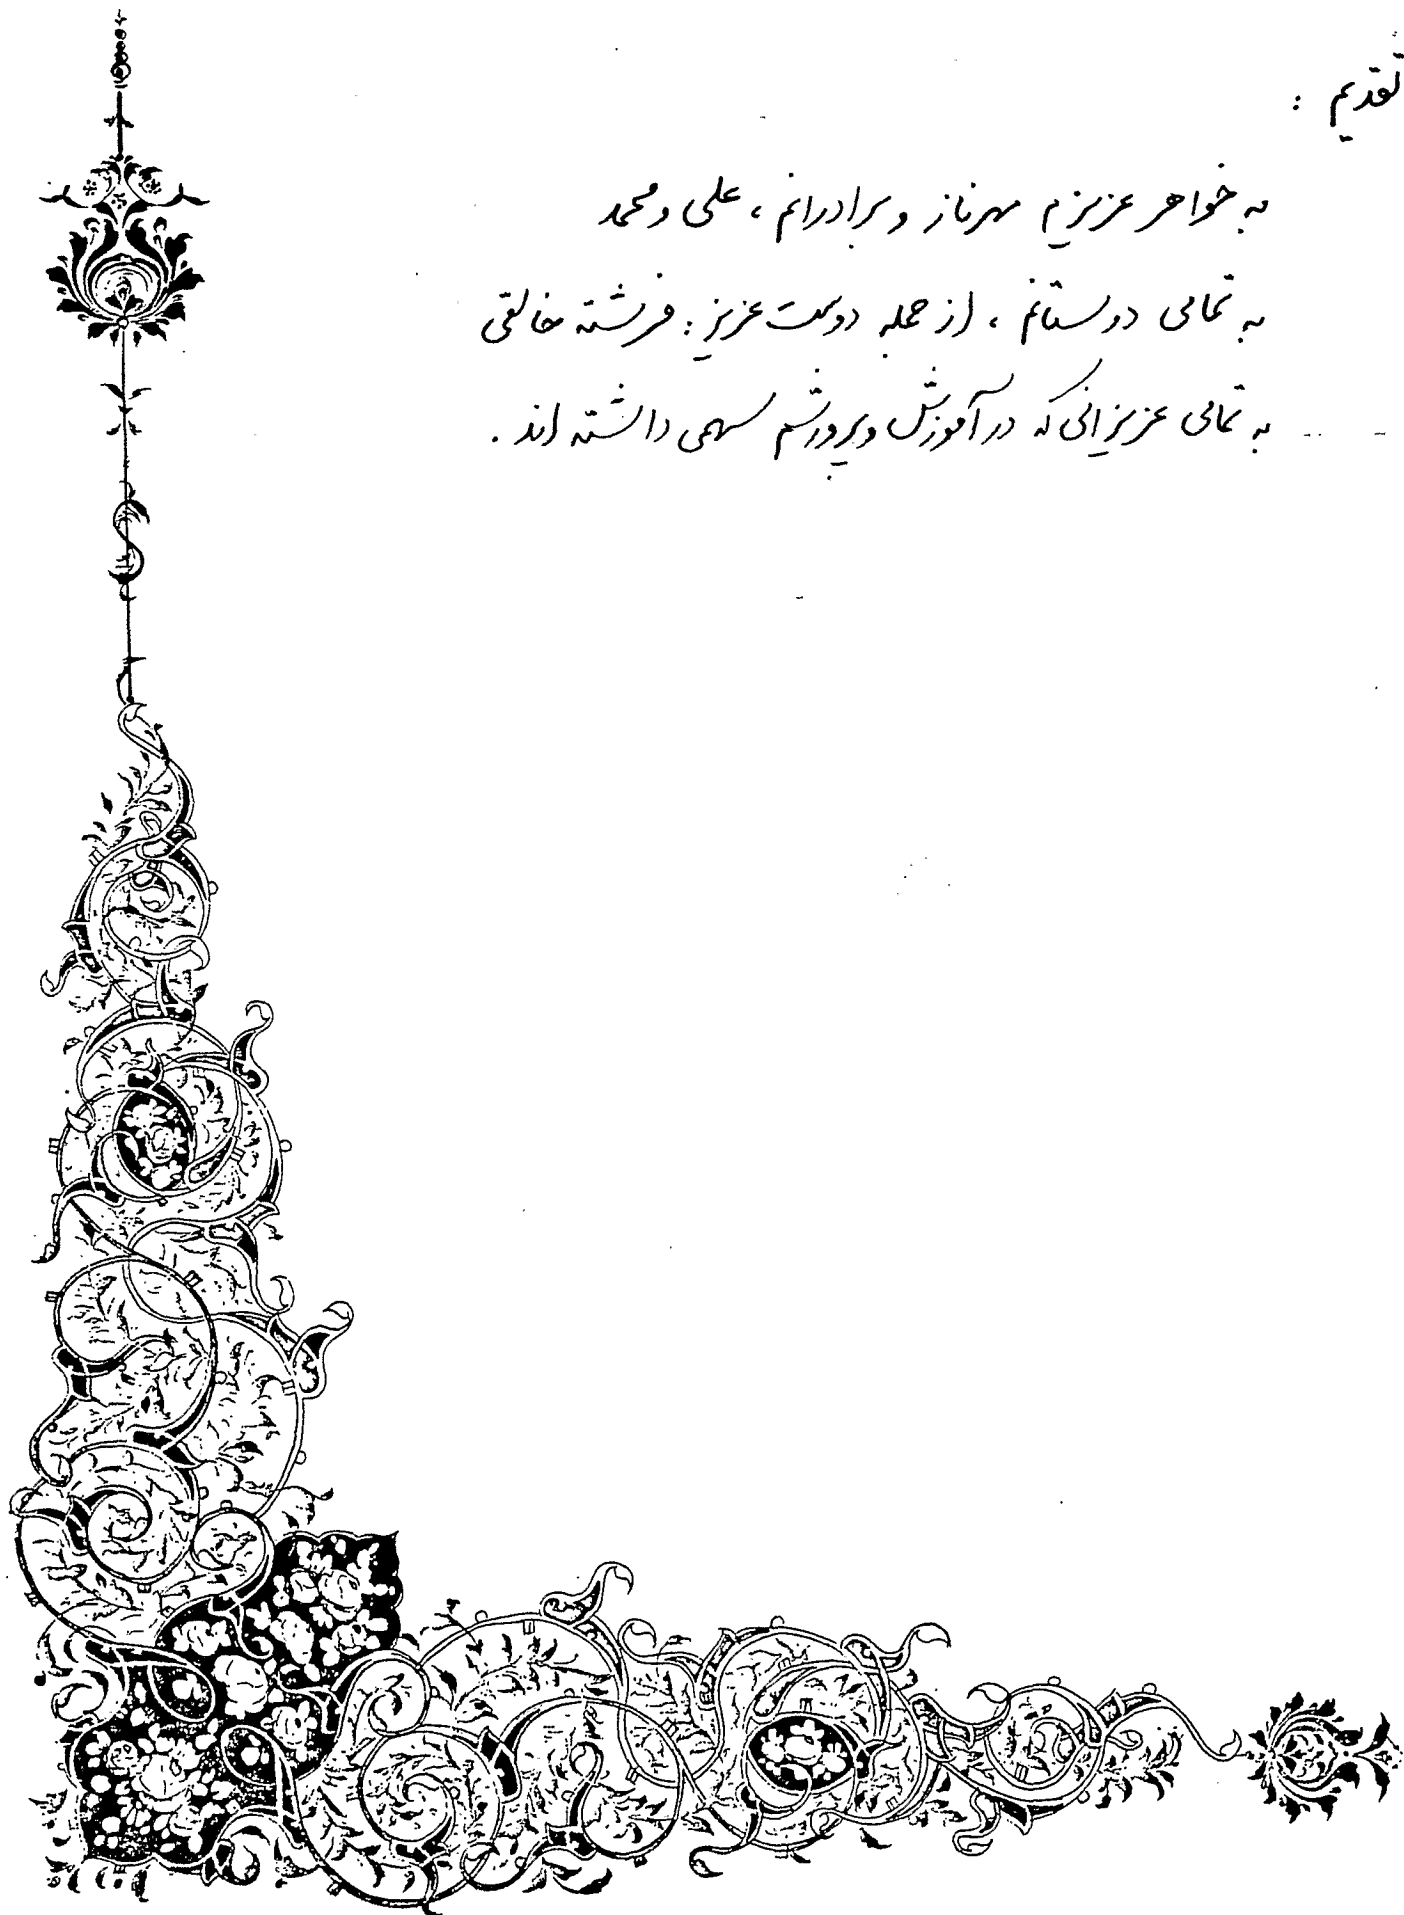 تقدیم :
به خواهر عزیزم مهرناز و برادرانم ، علی و محمد
به تمامی دوستانم ، از جمله دوست عزیز : فرشته خالقی
به تمامی عزیزانی که در آموزش و پرورشم سهمی داشته اند .